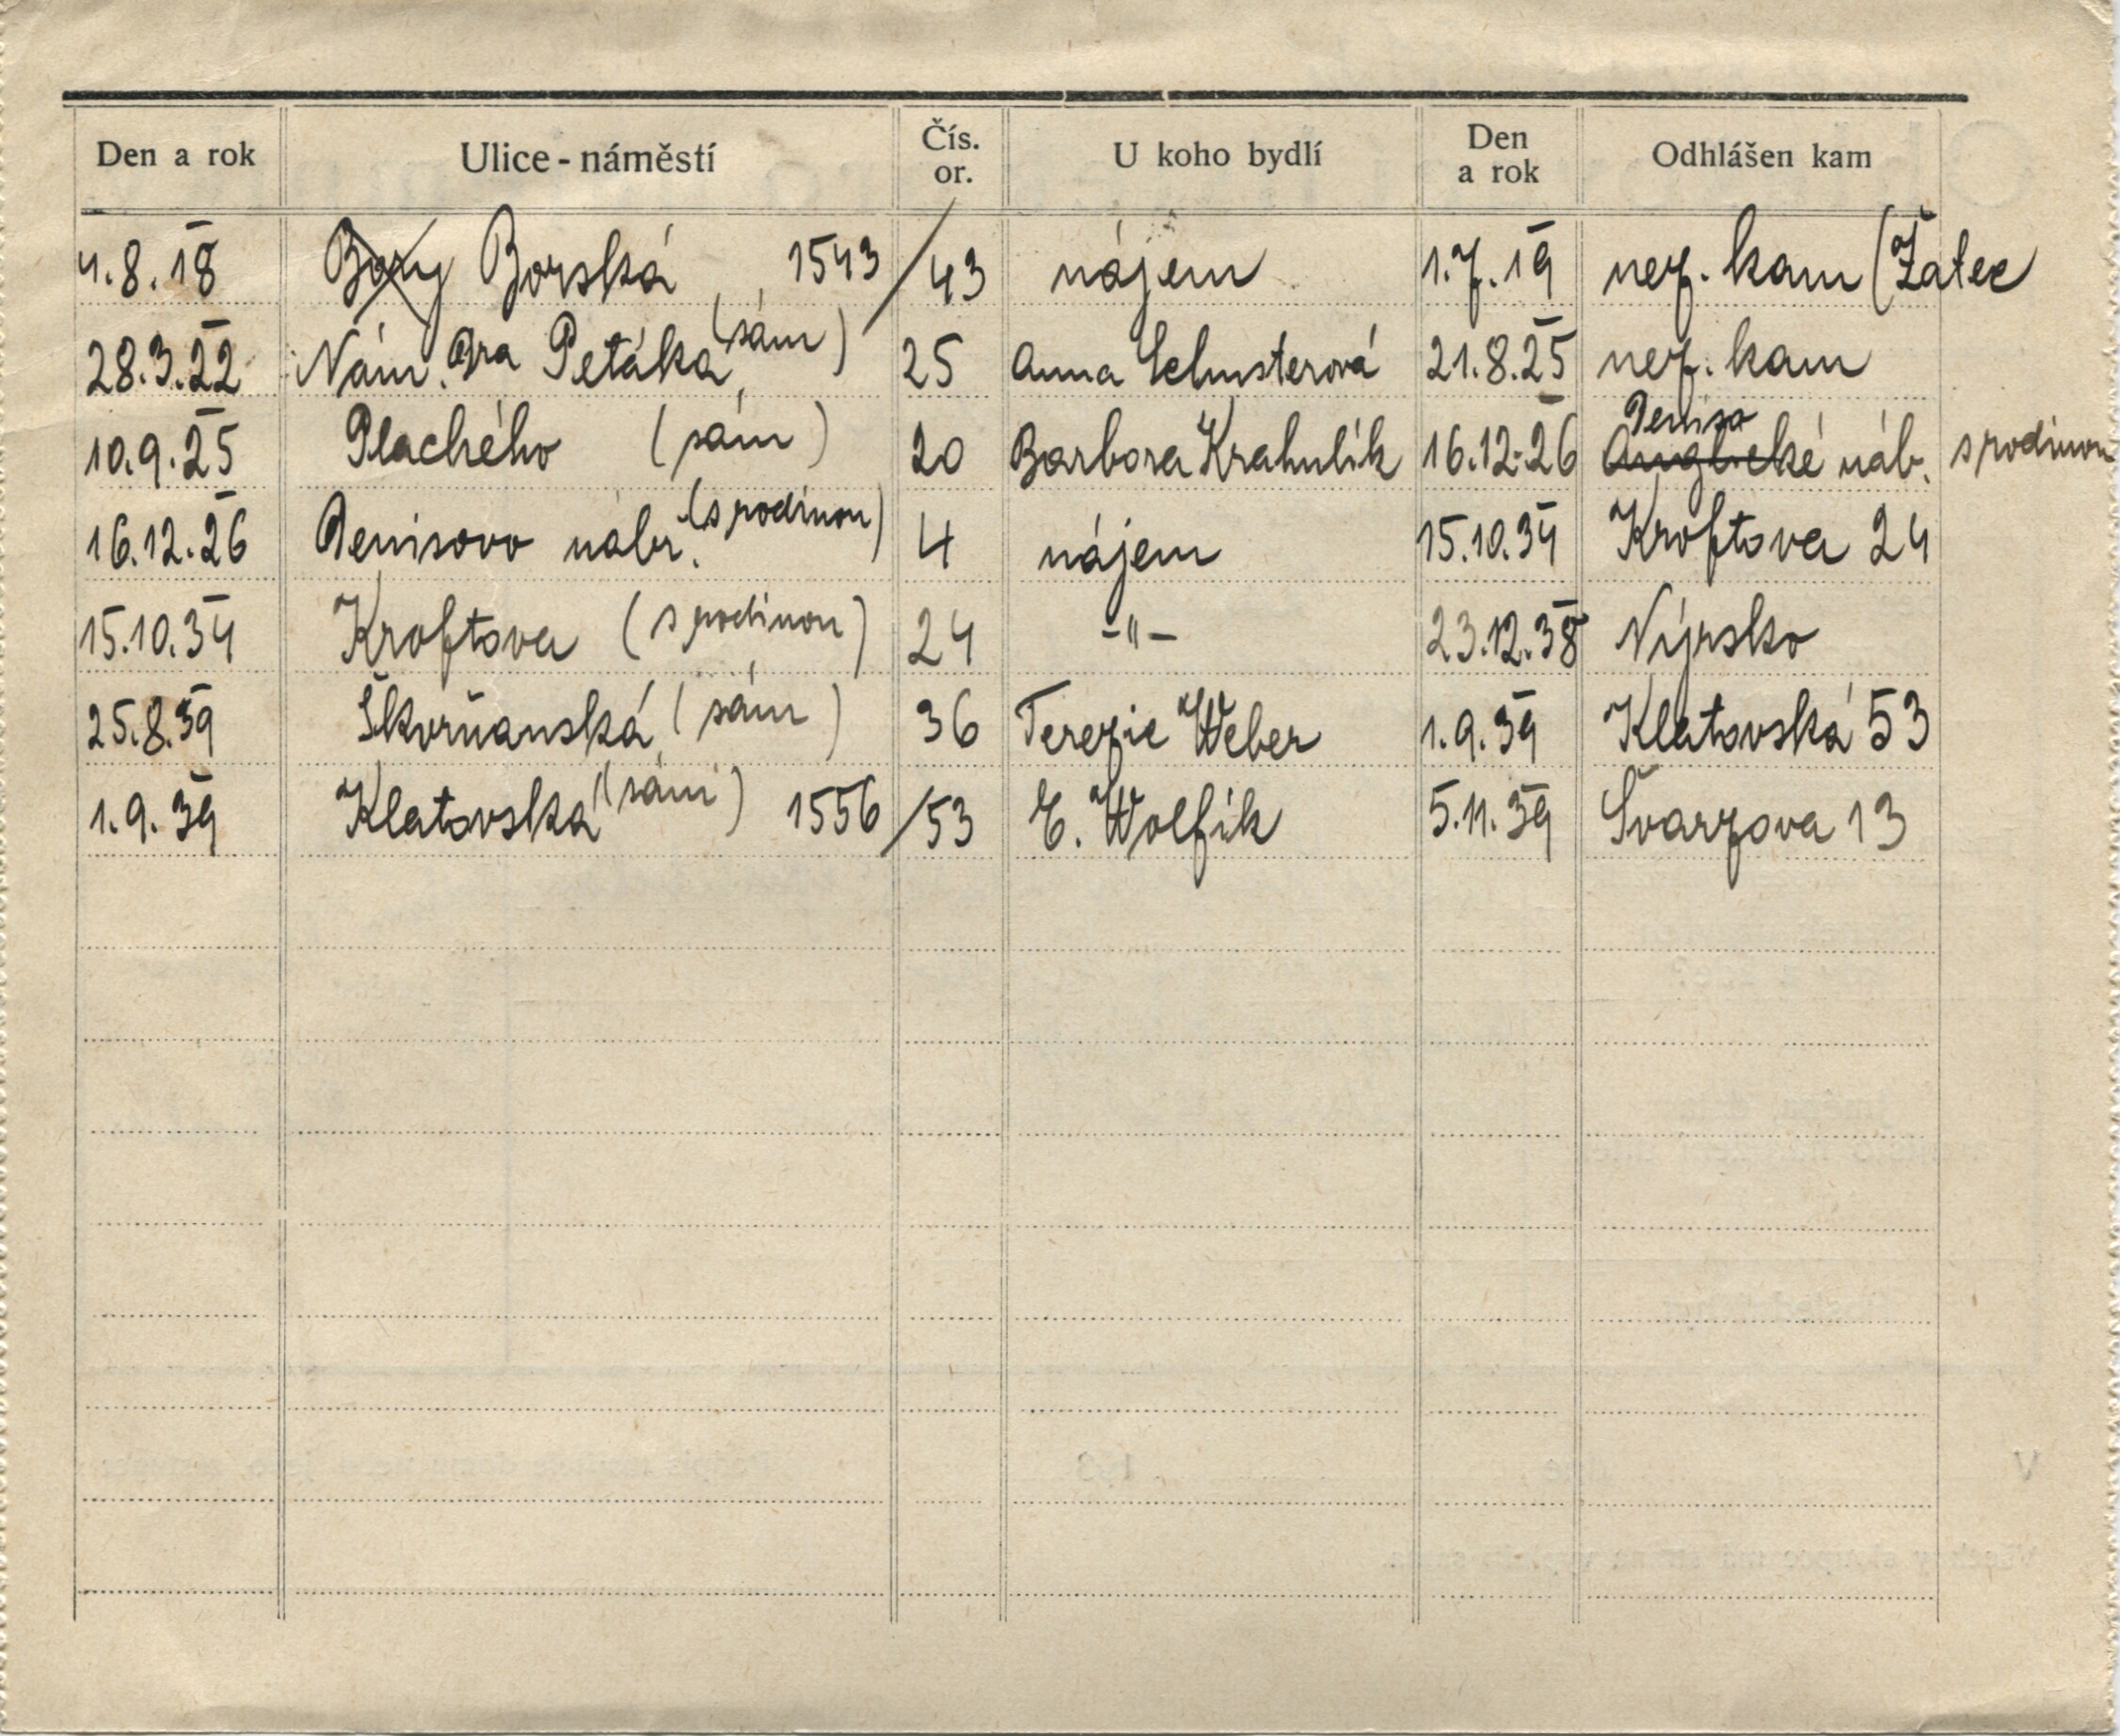 Den a rok Ulice - náměstí Čís. or. U koho bydlí Den a rok Odhlášen kam
4.8.18 Bory Borská 1543/43 nájem 1.7.19 nez. kam (Žatec
28.3.22 Nám. Dra Petáka (sám) 25 Anna Schusterová 21.8.25 nez. kam
10.9.25 Plachého (sám) 20 Barbora Krahulík 16.12.26 Anglické Deniso náb. s rodinou
16.12.26 Denisovo nábr. (s rodinou) 4 nájem 15.10.34 Kroftova 24
15.10.34 Kroftova (s rodinou) 24 -"- 23.12.38 Nýrsko
25.8.39 Škvrňanská (sám) 36 Terezie Weber 1.9.39 Klatovská 53
1.9.39 Klatovská (sám) 1556/53 E. Wolfík 5.11.39 Švarzova 13